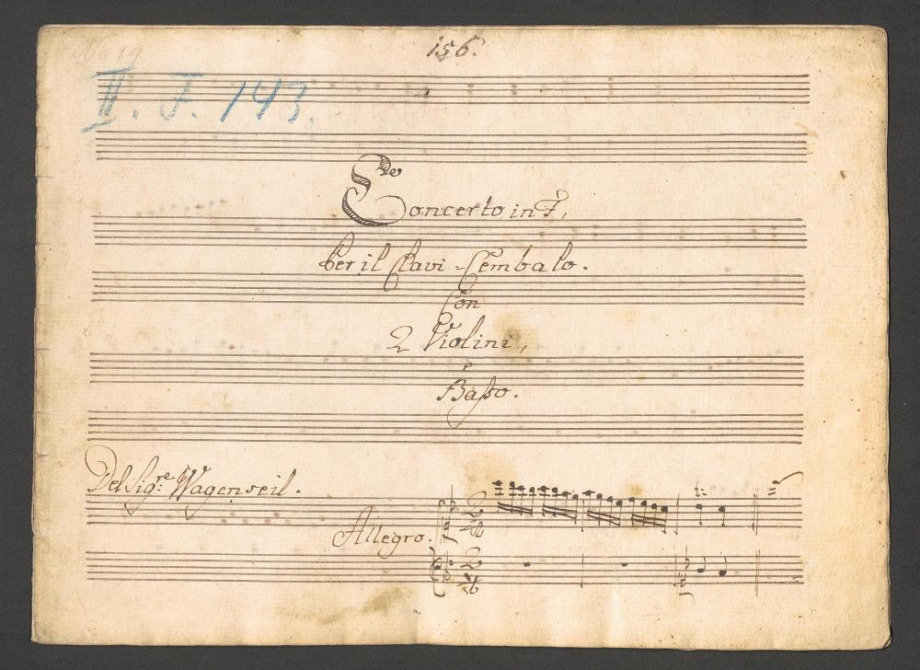 156.
No 19
II. J. 143.
Concerto in F,
Per il Clavi-Cembalo.
Con
2 Violini,
e
Basso.
Del Sig:re Wagenseil.
Allegro.